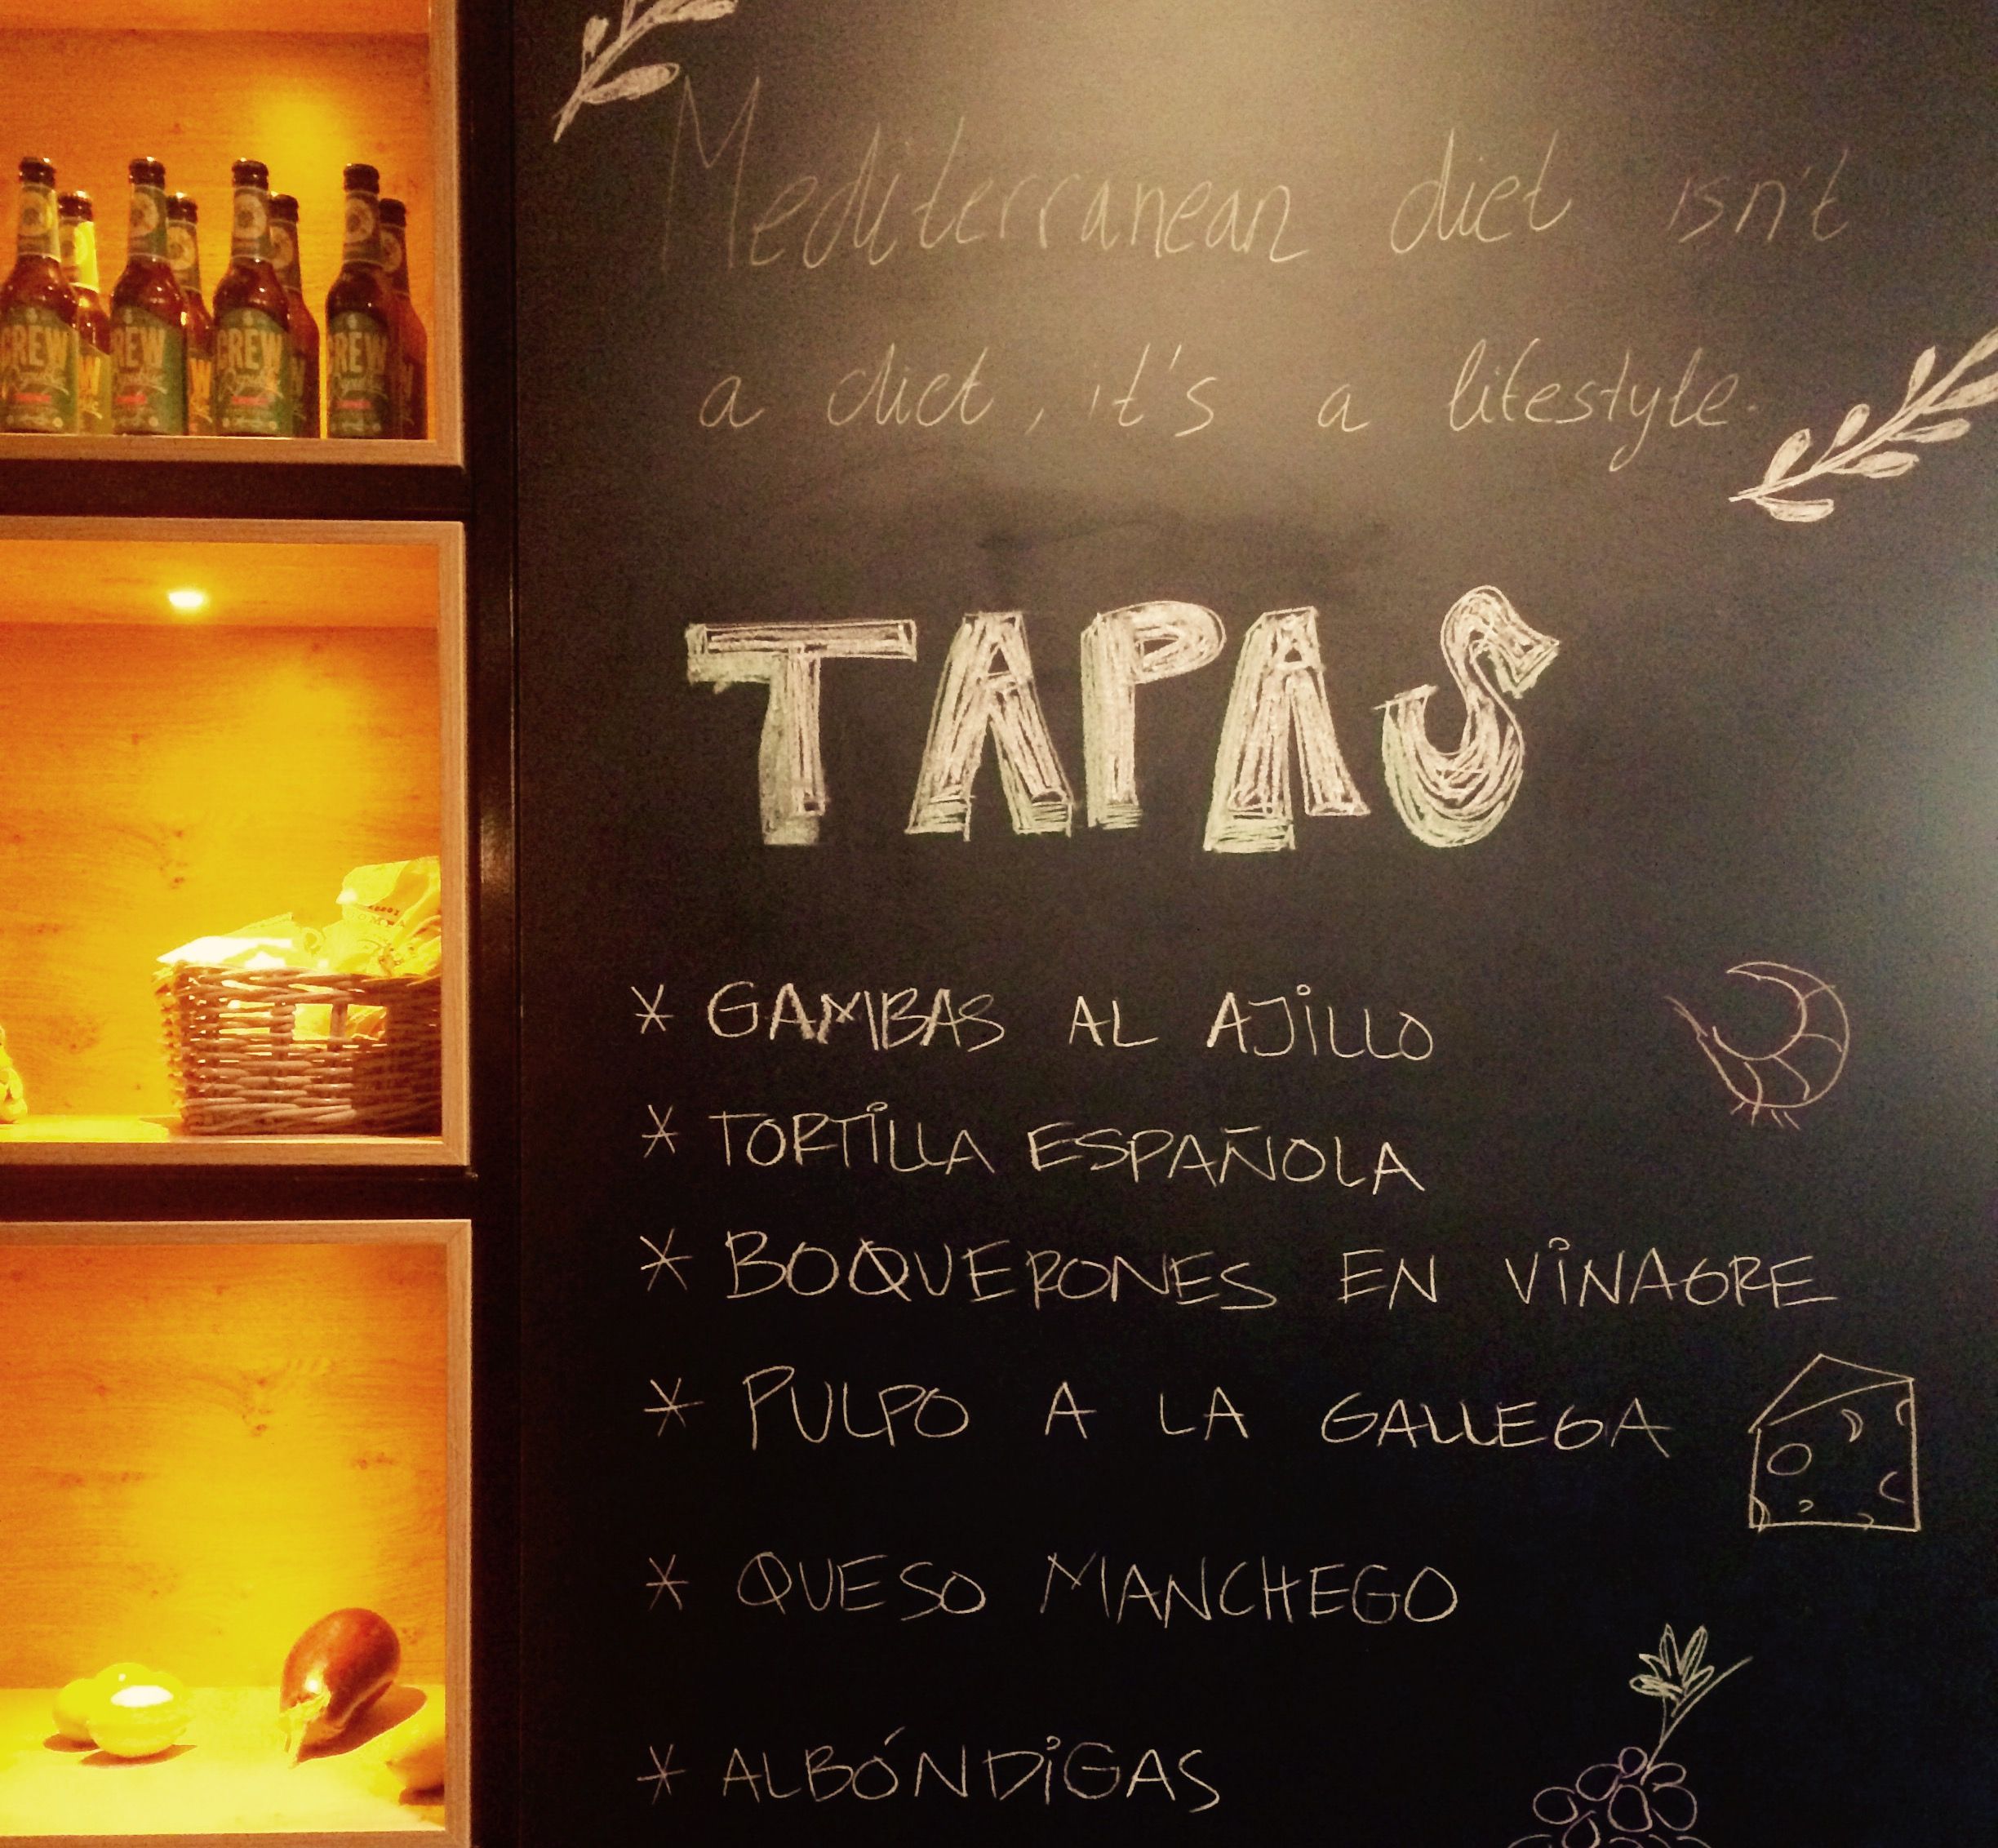 Mediterranean diet isn't
a diet, it's a lifestyle.
TAPAS
* GAMBAS AL AJiLLO
* TORTiLLA ESPAÑOLA
* BOQUERONES EN ViNAGRE
* PULPO A LA GALLEGA
* QUESO MANCHEGO
* ALBÓNDiGAS
CREW
CREW
CREW
CREW